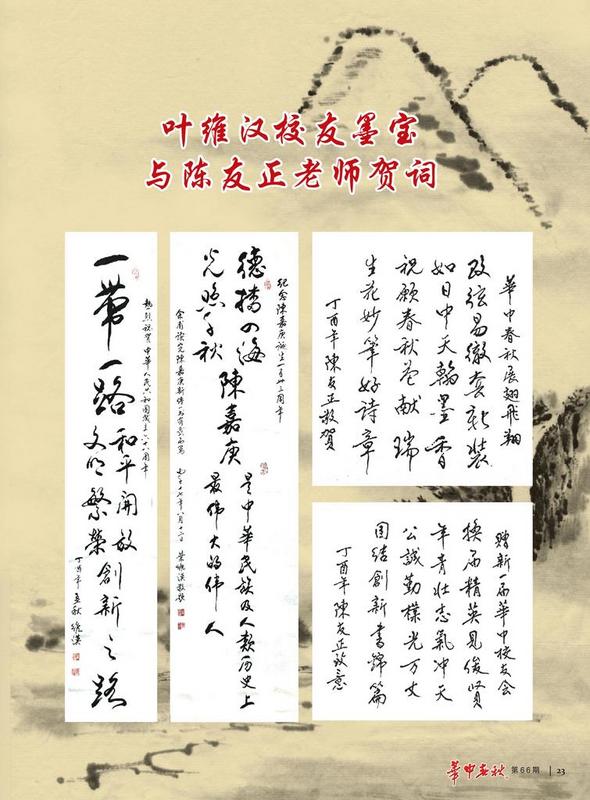 叶维汉校友墨宝
与陈友正老师贺词
热烈祝贺中华人民共和国成立六十八周年
一带一路 和平开放创新之路
文明繁荣
丁酉年孟秋 维汉
纪念陈嘉庚诞生一百卌三周年
德播四海 陈嘉庚 是中华民族及人类历史上
光照千秋 最伟大的伟人
華中春秋展翅飛翔
改弦易徹套新装
如日中天翰墨香
祝願春秋花献瑞
生花妙筆好詩章
丁酉年陳友正敬賀
贈新一届華中校友会
换届精英見俊賢
年青壮志氣冲天
公誠勤樸光万丈
团结創新書錦篇
丁酉年陳友正致意
華中春秋 第66期 23